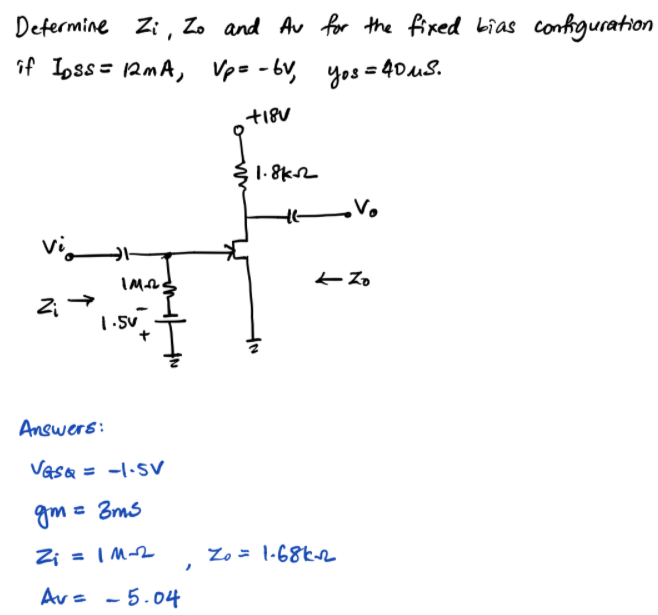 Determine Zi, Zo and Av for the fixed bias configuration
if IDSS = 12mA, Vp = -6V, yos = 40μS.
+18V
1.8kΩ
Vo
Vi
1MΩ
← Zo
Zi →
1.5V
-
+
Answers:
VGSQ = -1.5V
gm = 3mS
Zi = 1MΩ , Zo = 1.68kΩ
Av = -5.04